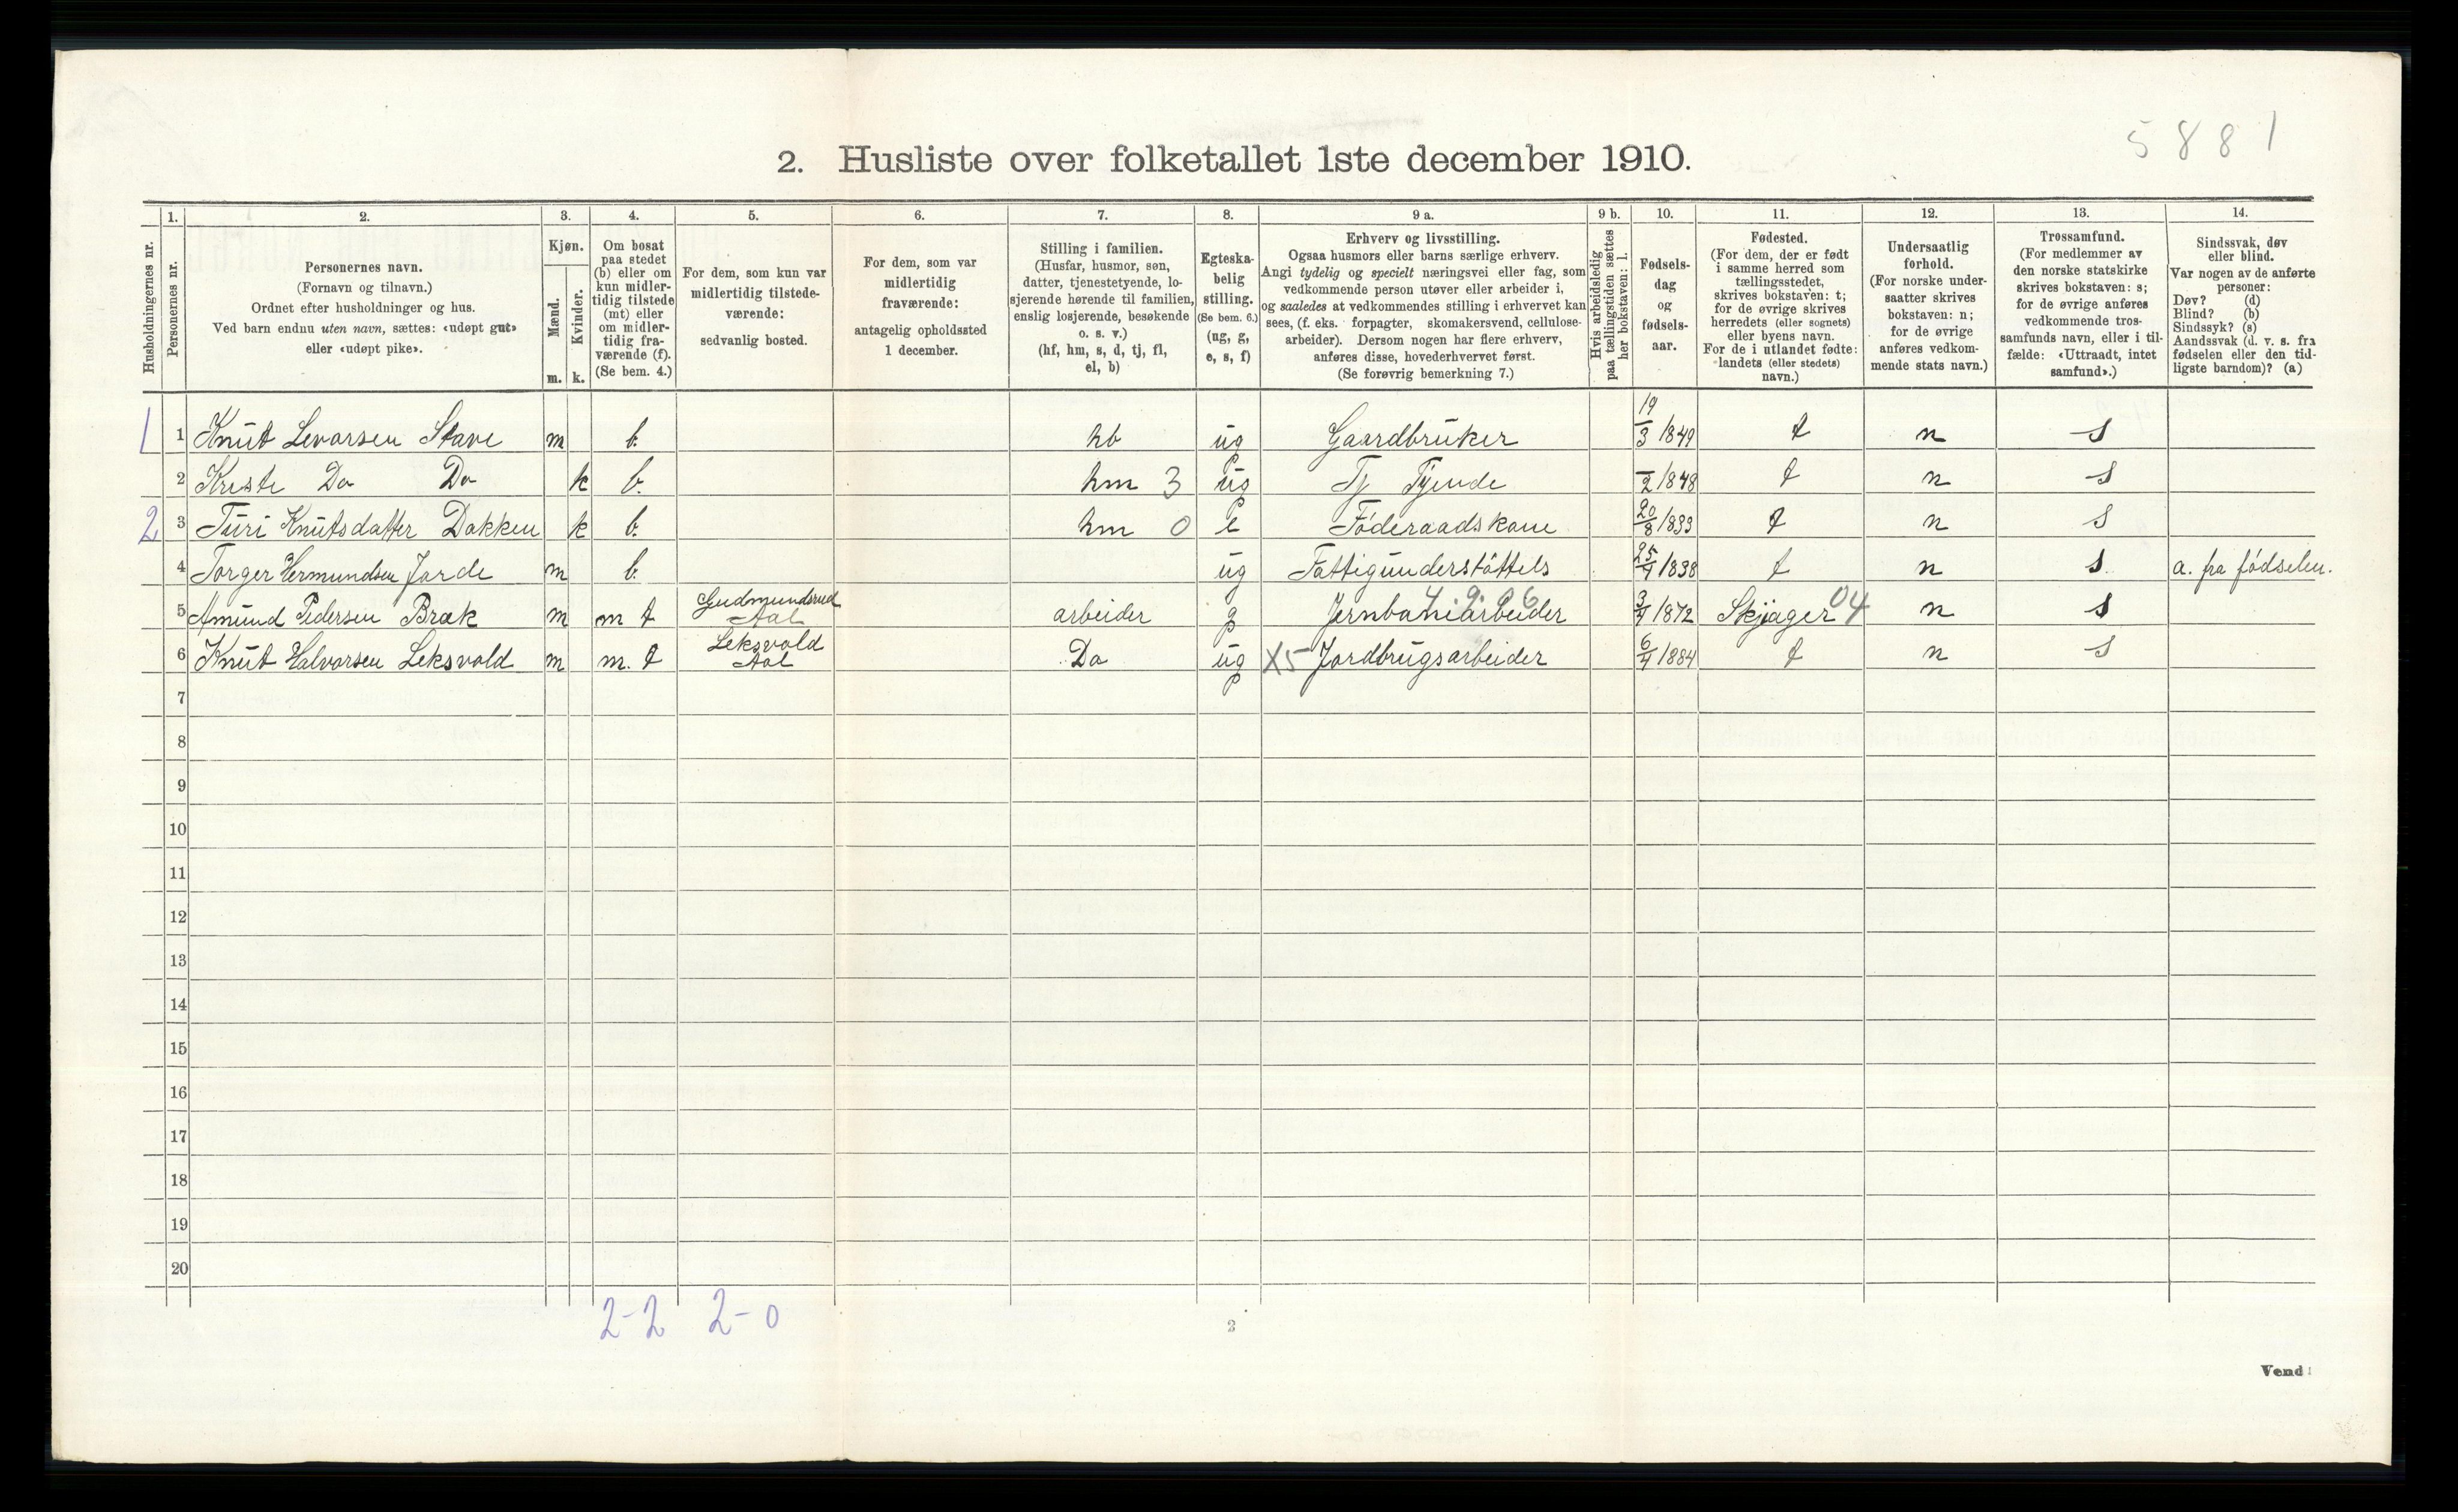 5881
2. Husliste over folketallet 1ste december 1910.
Husholdningernes nr.
1.
Personernes nr.
2.
Personernes navn.
(Fornavn og tilnavn.)
Ordnet efter husholdninger og hus.
Ved barn endnu uten navn, sættes: «udøpt gut»
eller «udøpt pike».
3.
Kjøn.
Mænd.
Kvinder.
m.
k.
4.
Om bosat
paa stedet
(b) eller om
kun midler-
tidig tilstede
(mt) eller
om midler-
tidig fra-
værende (f).
(Se bem. 4.)
5.
For dem, som kun var
midlertidig tilstede-
værende:
sedvanlig bosted.
6.
For dem, som var
midlertidig
fraværende:
antagelig opholdssted
1 december.
7.
Stilling i familien.
(Husfar, husmor, søn,
datter, tjenestetyende, lo-
sjerende hørende til familien,
enslig losjerende, besøkende
o. s. v.)
(hf, hm, s, d, tj, fl,
el, b)
8.
Egteska-
belig
stilling.
(Se bem. 6.)
(ug, g,
e, s, f)
9 a.
Erhverv og livsstilling.
Ogsaa husmors eller barns særlige erhverv.
Angi tydelig og specielt næringsvei eller fag, som
vedkommende person utøver eller arbeider i,
og saaledes at vedkommendes stilling i erhvervet kan
sees, (f. eks. forpagter, skomakersvend, cellulose-
arbeider). Dersom nogen har flere erhverv,
anføres disse, hovederhvervet først.
(Se forøvrig bemerkning 7.)
9 b.
Hvis arbeidsledig
paa tællingstiden sættes
her bokstaven: l.
10.
Fødsels-
dag
og
fødsels-
aar.
11.
Fødested.
(For dem, der er født
i samme herred som
tællingsstedet,
skrives bokstaven: t;
for de øvrige skrives
herredets (eller sognets)
eller byens navn.
For de i utlandet fødte:
landets (eller stedets)
navn.)
12.
Undersaatlig
forhold.
(For norske under-
saatter skrives
bokstaven: n;
for de øvrige
anføres vedkom-
mende stats navn.)
13.
Trossamfund.
(For medlemmer av
den norske statskirke
skrives bokstaven: s;
for de øvrige anføres
vedkommende tros-
samfunds navn, eller i til-
fælde: «Uttraadt, intet
samfund».)
14.
Sindssvak, døv
eller blind.
Var nogen av de anførte
personer:
Døv? (d)
Blind? (b)
Sindssyk? (s)
Aandssvak (d. v. s. fra
fødselen eller den tid-
ligste barndom)? (a)
1 1 Knut Levorsen Stave m b. hb ug Gaardbruker 19/3 1849 t n s
2 Kreste Do Do k b. hm 3 ug Tj Tjende /2 1848 t n s
2 3 Turi Knutsdatter Dokken k b. hm 0 e Föderaadskone 20/8 1833 t n s
4 Torger Hermundsen Jorde m b. ug Fattigunderstöttels 25/4 1838 t n s. a. fra födselen.
5 Amund Pedersen Bræk m m t Gudmundsrud Aal arbeider g Jernbanearbeider 3/4 1872 Skjager 04 n s
6 Knut Halvorsen Leksvold m m. t Leksvold Aal Do ug X5 Jordbrugsarbeider 6/4 1884 t n s
7
8
9
10
11
12
13
14
15
16
17
18
19
20
2-2 2-0
2
Vend!